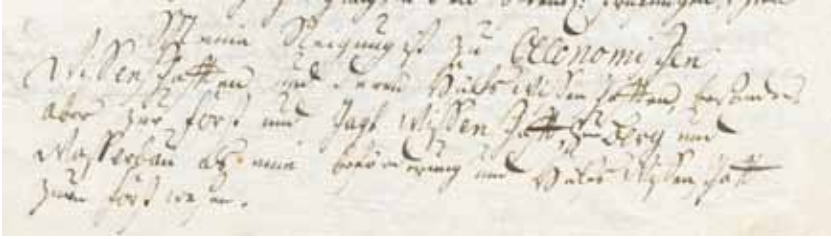 Meine Neigung ist zu Oeconomischen
Wissenschafften und deren Hülfswissenschafften, besonders
aber zur Forst und Jagt Wissenschafft, zu Berg und
Wasserbau als eine und Hülfs Wissenschafft
zum Forstwesen.